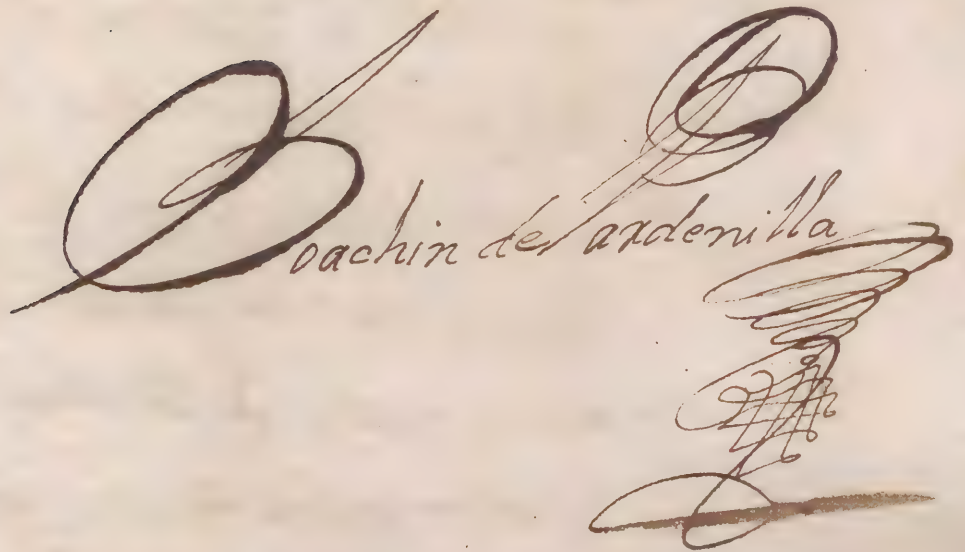 Joachin de Pardenilla